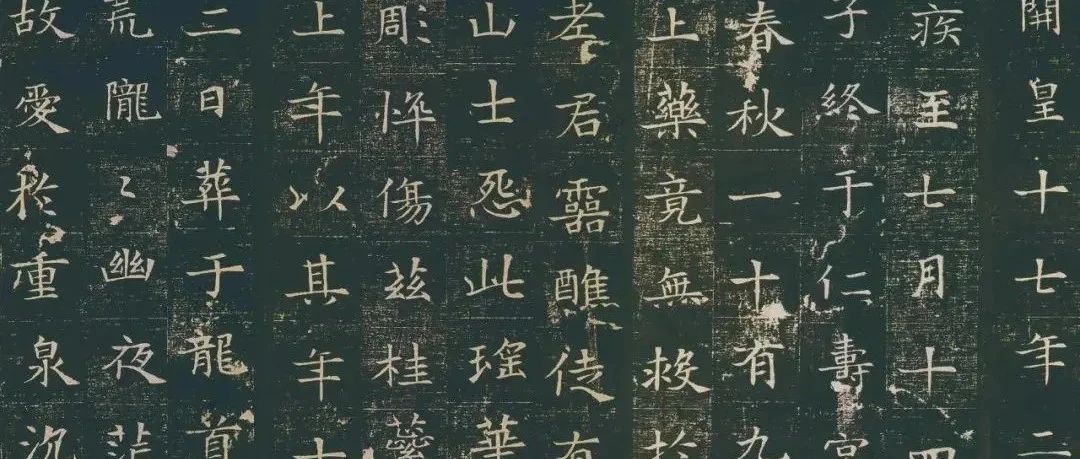 開皇十七年二
疾至七月十四
子終于仁壽宮
春秋一十有九
上藥竟無救於
老君靈醮徒有
山士怨此瑤華
彫悴傷茲桂蘂
上年以其年十
二日葬于龍首
荒隴〻幽夜茫
故愛於重泉沉